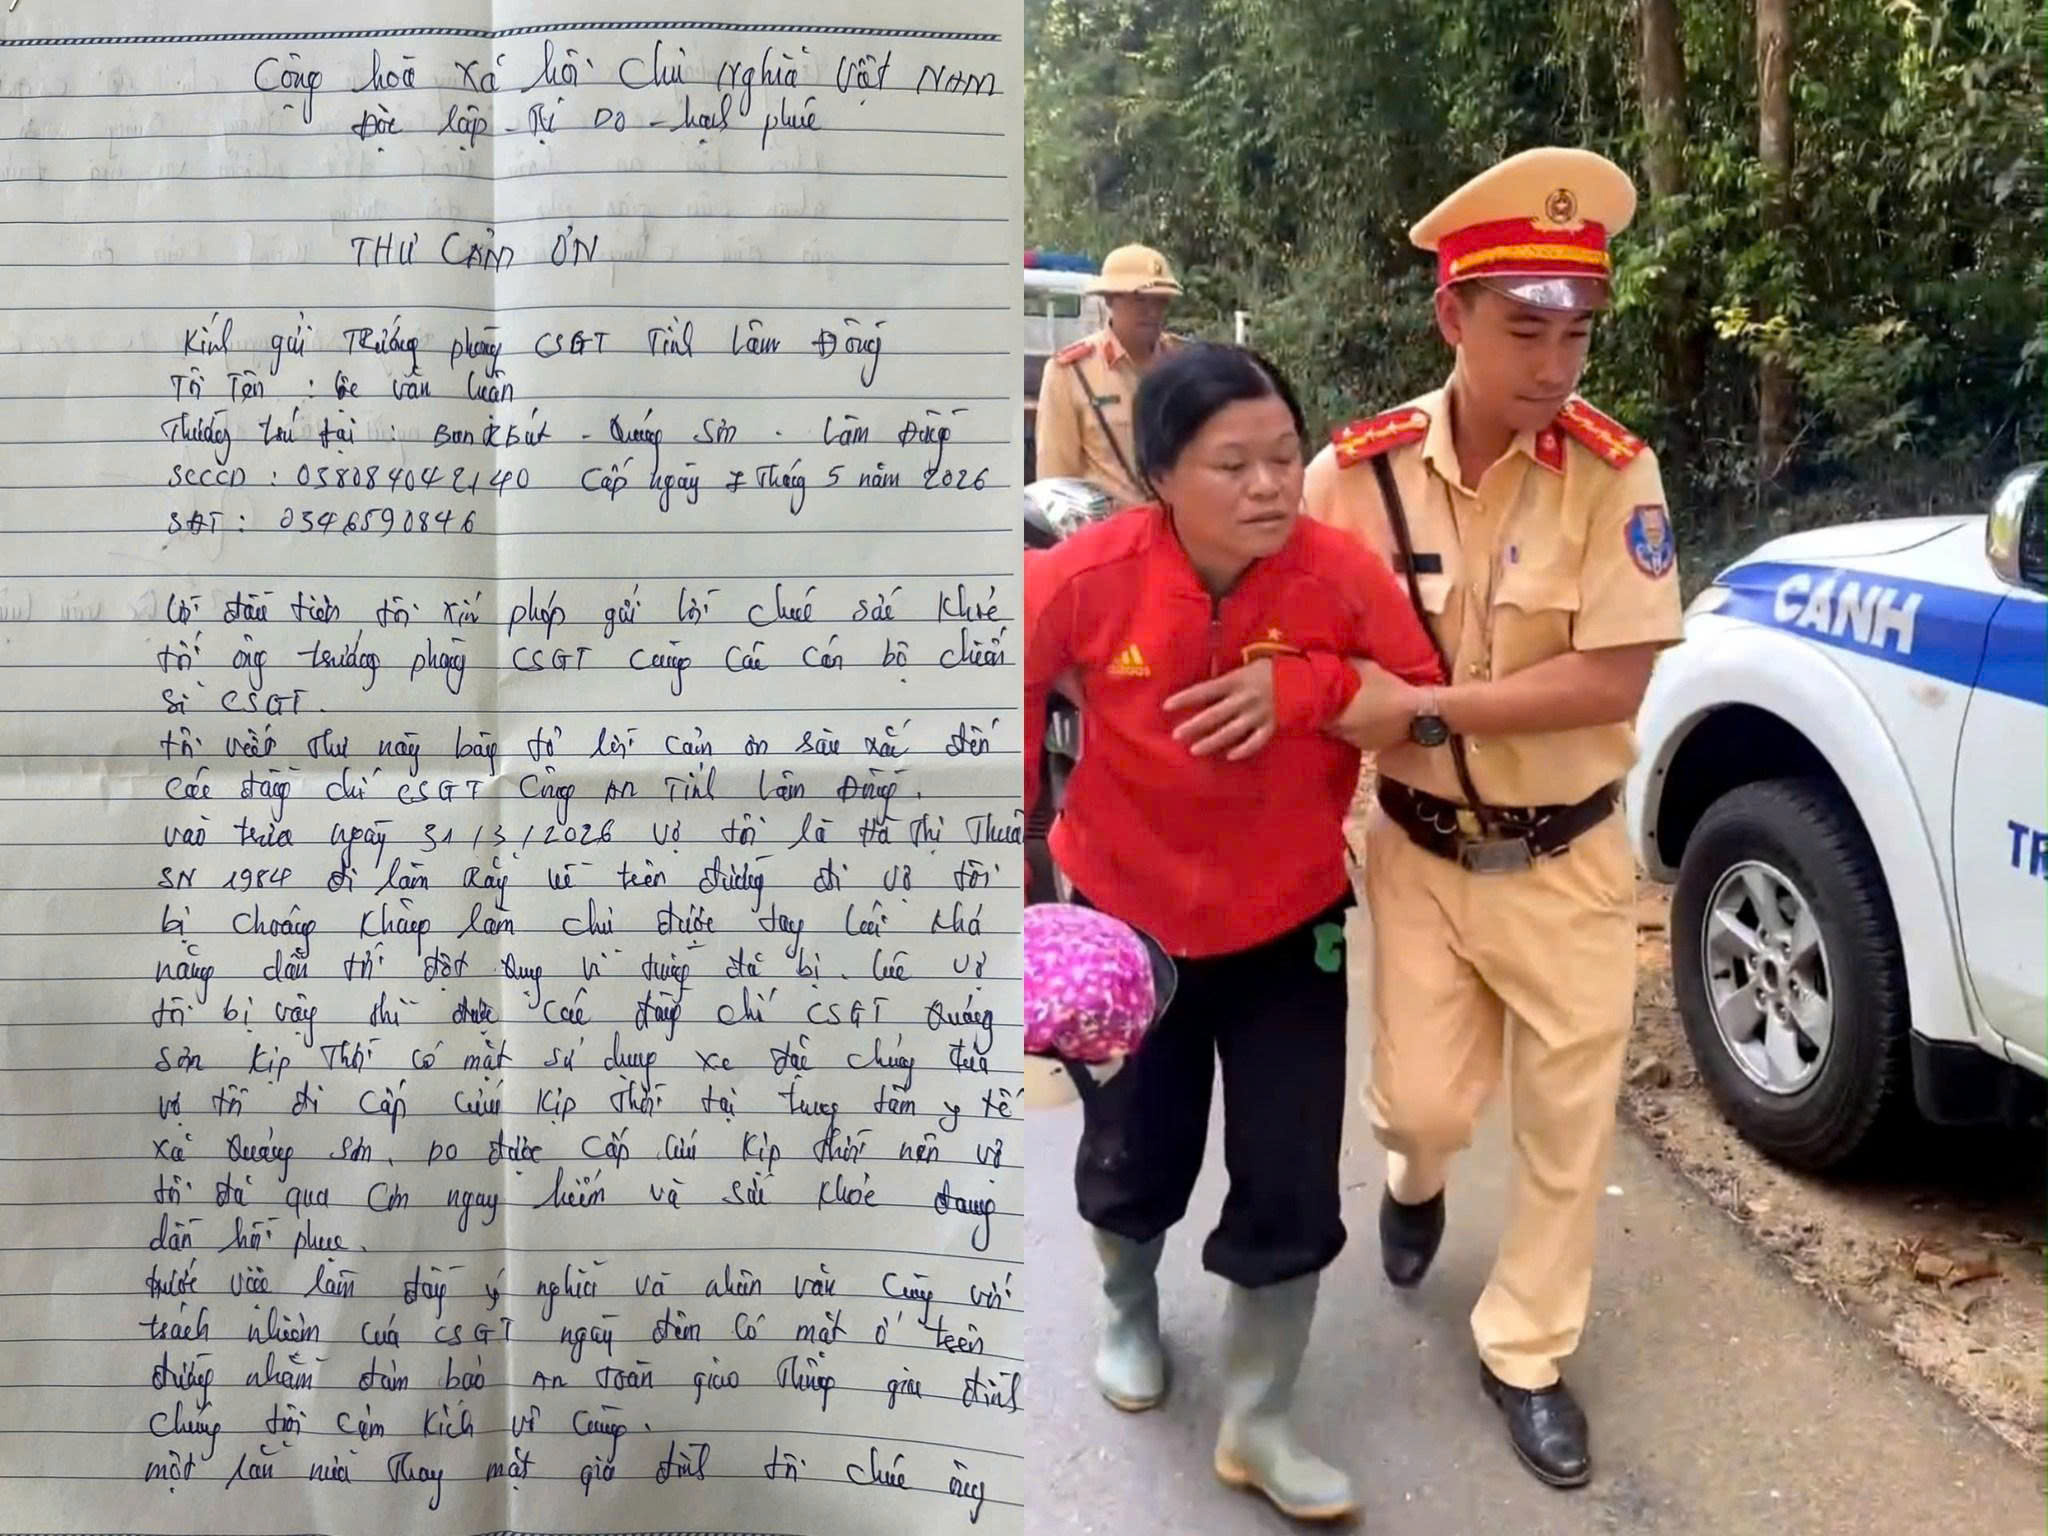 Cộng hoà xã hội Chủ Nghĩa Việt NAM
Độc lập - Tự Do - hạnh phúc
THƯ CẢM ƠN
Kính gửi Trưởng phòng CSGT Tỉnh Lâm Đồng
Tôi Tên : văn luân
Thường trú tại : Bon - Quảng Sơn - Lâm Đồng
SCCCD : 038084042140 Cấp ngày 7 Tháng 5 năm 2026
SĐT : 0346590846
Lời đầu tiên tôi xin phép gửi lời chúc sức khoẻ
tới ông trưởng phòng CSGT cùng các cán bộ chiến
sĩ CSGT.
tôi viết Thư này bày tỏ lời cảm ơn sâu sắc đến
các đồng chí CSGT Công An Tỉnh Lâm Đồng.
vào trưa ngày 31/3/2026 vợ tôi là Hà Thị
SN 1984 đi làm Rẫy về trên đường đi vợ tôi
bị choáng không làm chủ được tay lái khả
năng dẫn tới đột quỵ vì từng đã bị. lúc vợ
tôi bị vậy thì được các đồng chí CSGT Quảng
Sơn kịp Thời có mặt sử dụng xe đặc chủng đưa
vợ tôi đi cấp cứu kịp Thời tại trung tâm y tế
xã Quảng Sơn. Do được cấp cứu kịp thời nên vợ
tôi đã qua cơn nguy hiểm và sức khoẻ đang
dần hồi phục.
trước việc làm đầy ý nghĩa và nhân văn cùng với
trách nhiệm của CSGT ngày đêm có mặt ở trên
đường nhằm đảm bảo An Toàn giao Thông gia đình
chúng tôi cảm kích vô cùng.
một lần nữa Thay mặt gia đình tôi chúc ông
CẢNH
TR
adidas